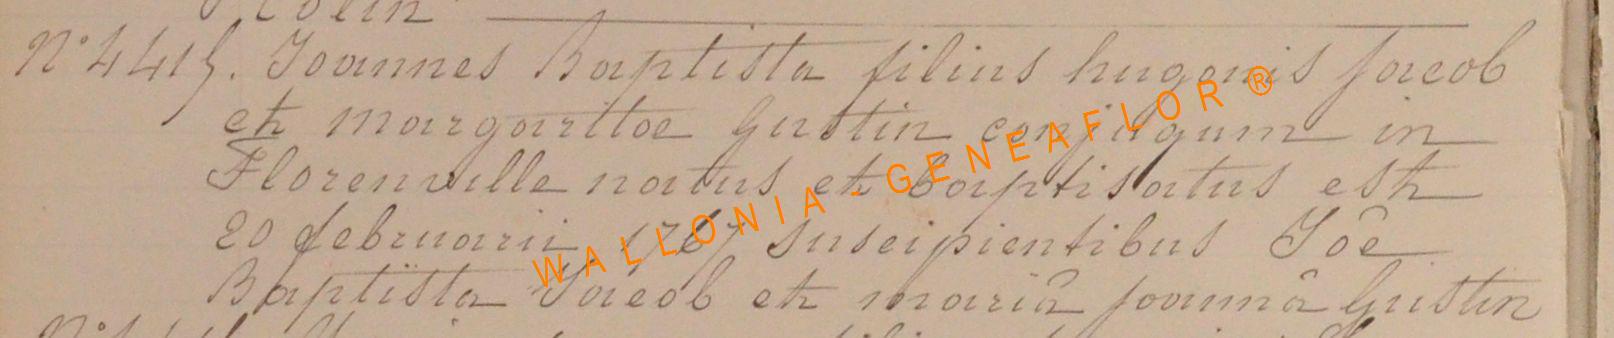 Colin
N° 4415. Joannes Baptista filius hugonis Jacob
et margaritae Gustin conjugum in
Florenville natus et baptisatus est
20 februarii 1767 suscipientibus Joê
Baptista Jacob et mariâ joannâ Gustin
WALLONIA - GENEAFLOR ®